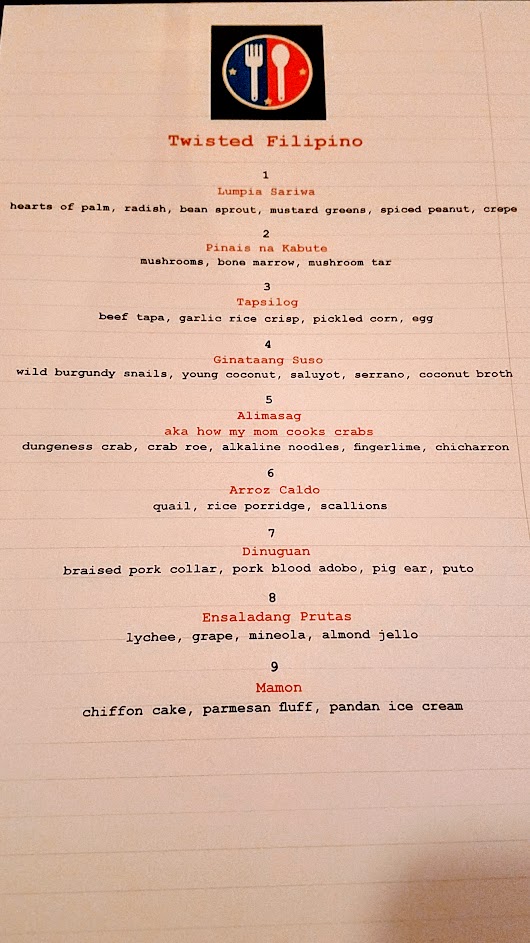 Twisted Filipino
1
Lumpia Sariwa
hearts of palm, radish, bean sprout, mustard greens, spiced peanut, crepe
2
Pinais na Kabute
mushrooms, bone marrow, mushroom tar
3
Tapsilog
beef tapa, garlic rice crisp, pickled corn, egg
4
Ginataang Suso
wild burgundy snails, young coconut, saluyot, serrano, coconut broth
5
Alimasag
aka how my mom cooks crabs
dungeness crab, crab roe, alkaline noodles, fingerlime, chicharron
6
Arroz Caldo
quail, rice porridge, scallions
7
Dinuguan
braised pork collar, pork blood adobo, pig ear, puto
8
Ensaladang Prutas
lychee, grape, mineola, almond jello
9
Mamon
chiffon cake, parmesan fluff, pandan ice cream